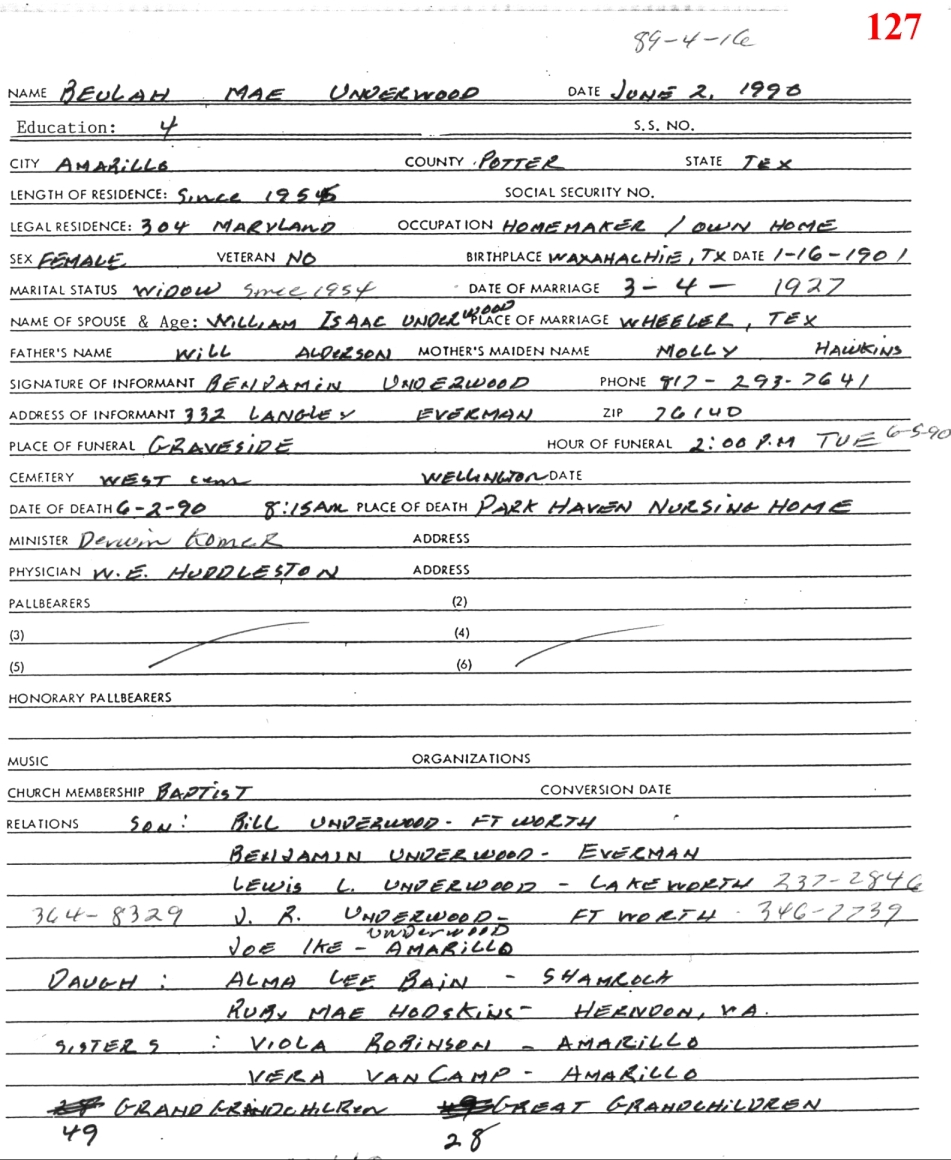 127
89-4-16
NAME BEULAH MAE UNDERWOOD DATE JUNE 2, 1990
Education: 4 S.S. NO.
CITY AMARILLO COUNTY POTTER STATE TEX
LENGTH OF RESIDENCE: Since 1954 SOCIAL SECURITY NO.
LEGAL RESIDENCE: 304 MARYLAND OCCUPATION HOMEMAKER / OWN HOME
SEX FEMALE VETERAN NO BIRTHPLACE WAXAHACHIE, TX DATE 1-16-1901
MARITAL STATUS WIDOW Since 1954 DATE OF MARRIAGE 3-4-1927
NAME OF SPOUSE & Age: WILLIAM ISAAC UNDERWOOD PLACE OF MARRIAGE WHEELER, TEX
FATHER'S NAME WILL ALDERSON MOTHER'S MAIDEN NAME MOLLY HAWKINS
SIGNATURE OF INFORMANT BENJAMIN UNDERWOOD PHONE 817-293-7641
ADDRESS OF INFORMANT 332 LANGLEY EVERMAN ZIP 76140
PLACE OF FUNERAL GRAVESIDE HOUR OF FUNERAL 2:00 P.M TUE 6-5-90
CEMETERY WEST cem WELLINGTON DATE
DATE OF DEATH 6-2-90 8:15AM PLACE OF DEATH PARK HAVEN NURSING HOME
MINISTER Derwin ADDRESS
PHYSICIAN W.E. HUDDLESTON ADDRESS
PALLBEARERS (2)
(3) (4)
(5) (6)
HONORARY PALLBEARERS
MUSIC ORGANIZATIONS
CHURCH MEMBERSHIP BAPTIST CONVERSION DATE
RELATIONS SON: BILL UNDERWOOD - FT WORTH
BENJAMIN UNDERWOOD - EVERMAN
LEWIS L. UNDERWOOD - LAKE WORTH 237-2846
364-8329 J. R. UNDERWOOD - FT WORTH 346-7739
JOE IKE UNDERWOOD - AMARILLO
DAUGH: ALMA LEE BAIN - SHAMROCK
RUBY MAE HODSKINS - HERNDON, VA.
SISTERS: VIOLA ROBINSON - AMARILLO
VERA VANCAMP - AMARILLO
GRAND GRANDCHILREN GREAT GRANDCHILDREN
49 28